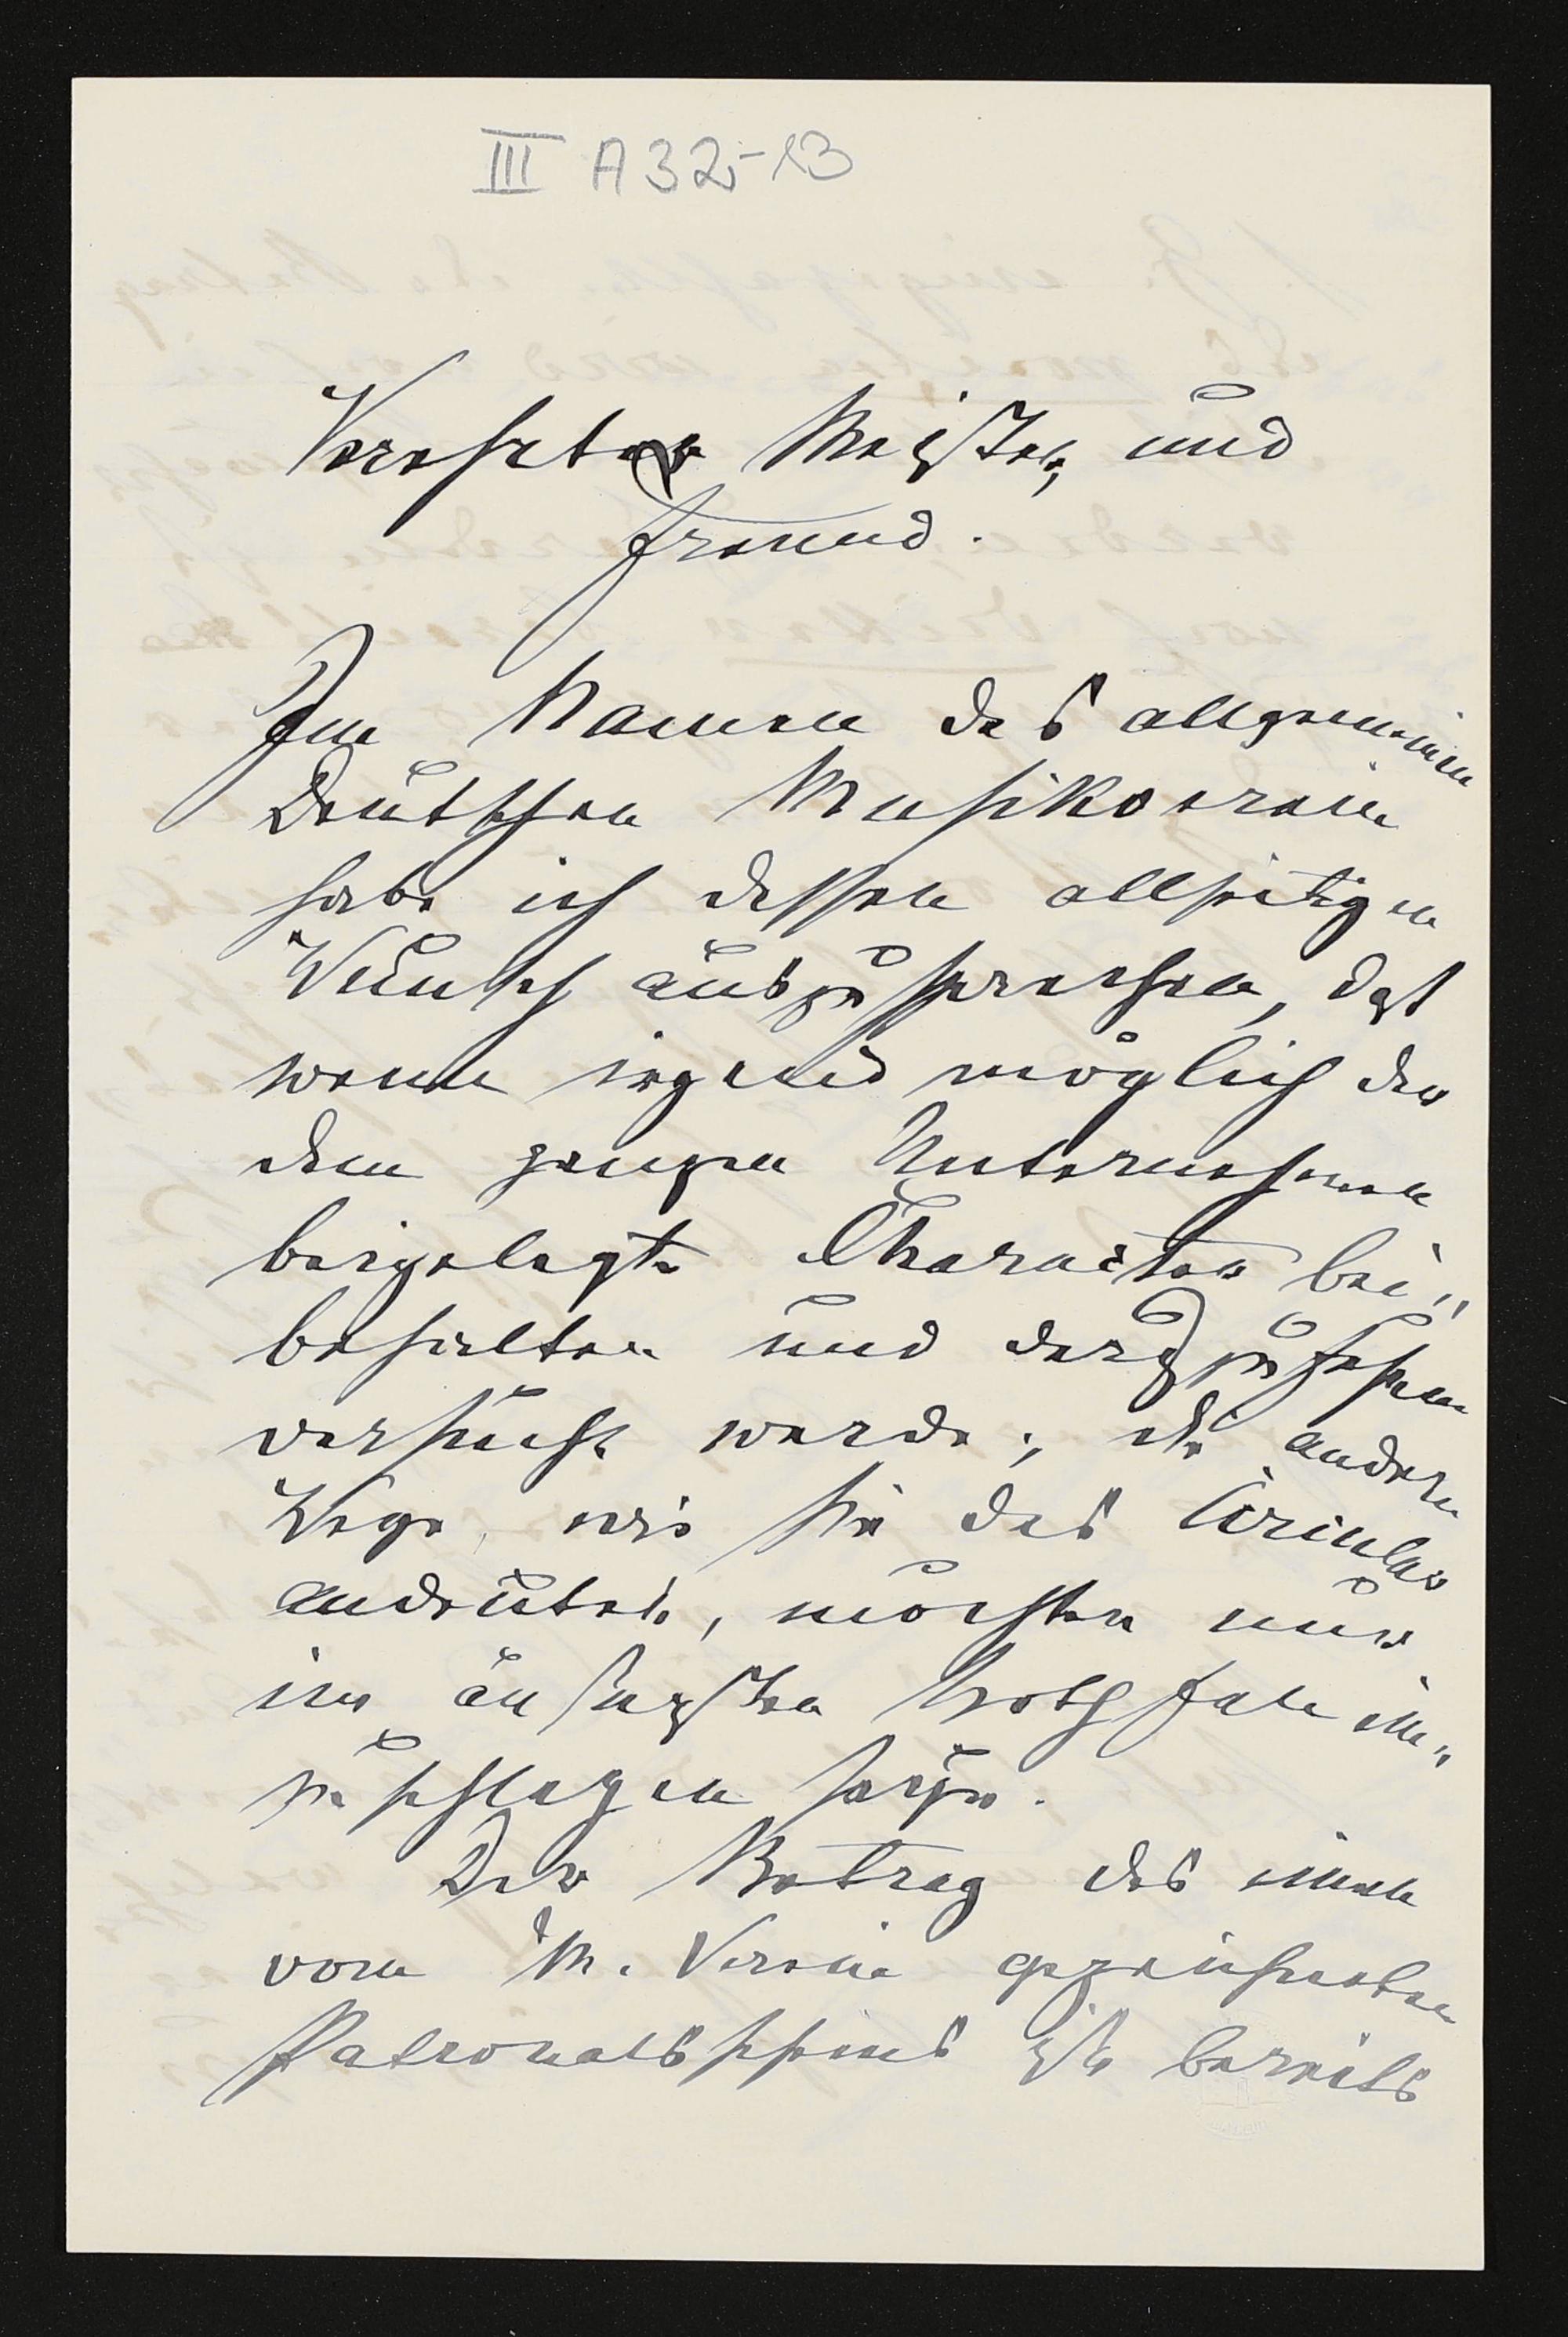 III A 32-13
Verehrter Meister und
Freund.
Im Namen des allgemeinen
Deutschen Musikverein
habe ich dessen allseitigen
Wunsch auszusprechen, daß
wenn irgend möglich der
dem ganzen Unternehmen
beigelegte Character bei„
behalten und
versucht werde; die andern
Wege, wie sie das Circular
andeutet, möchten nur
im äußersten Nothfall ein„
zuschlagen sein.
Der Betrag des einen
vom M. Verein gezeichneten
Patronatsscheins ist bereits